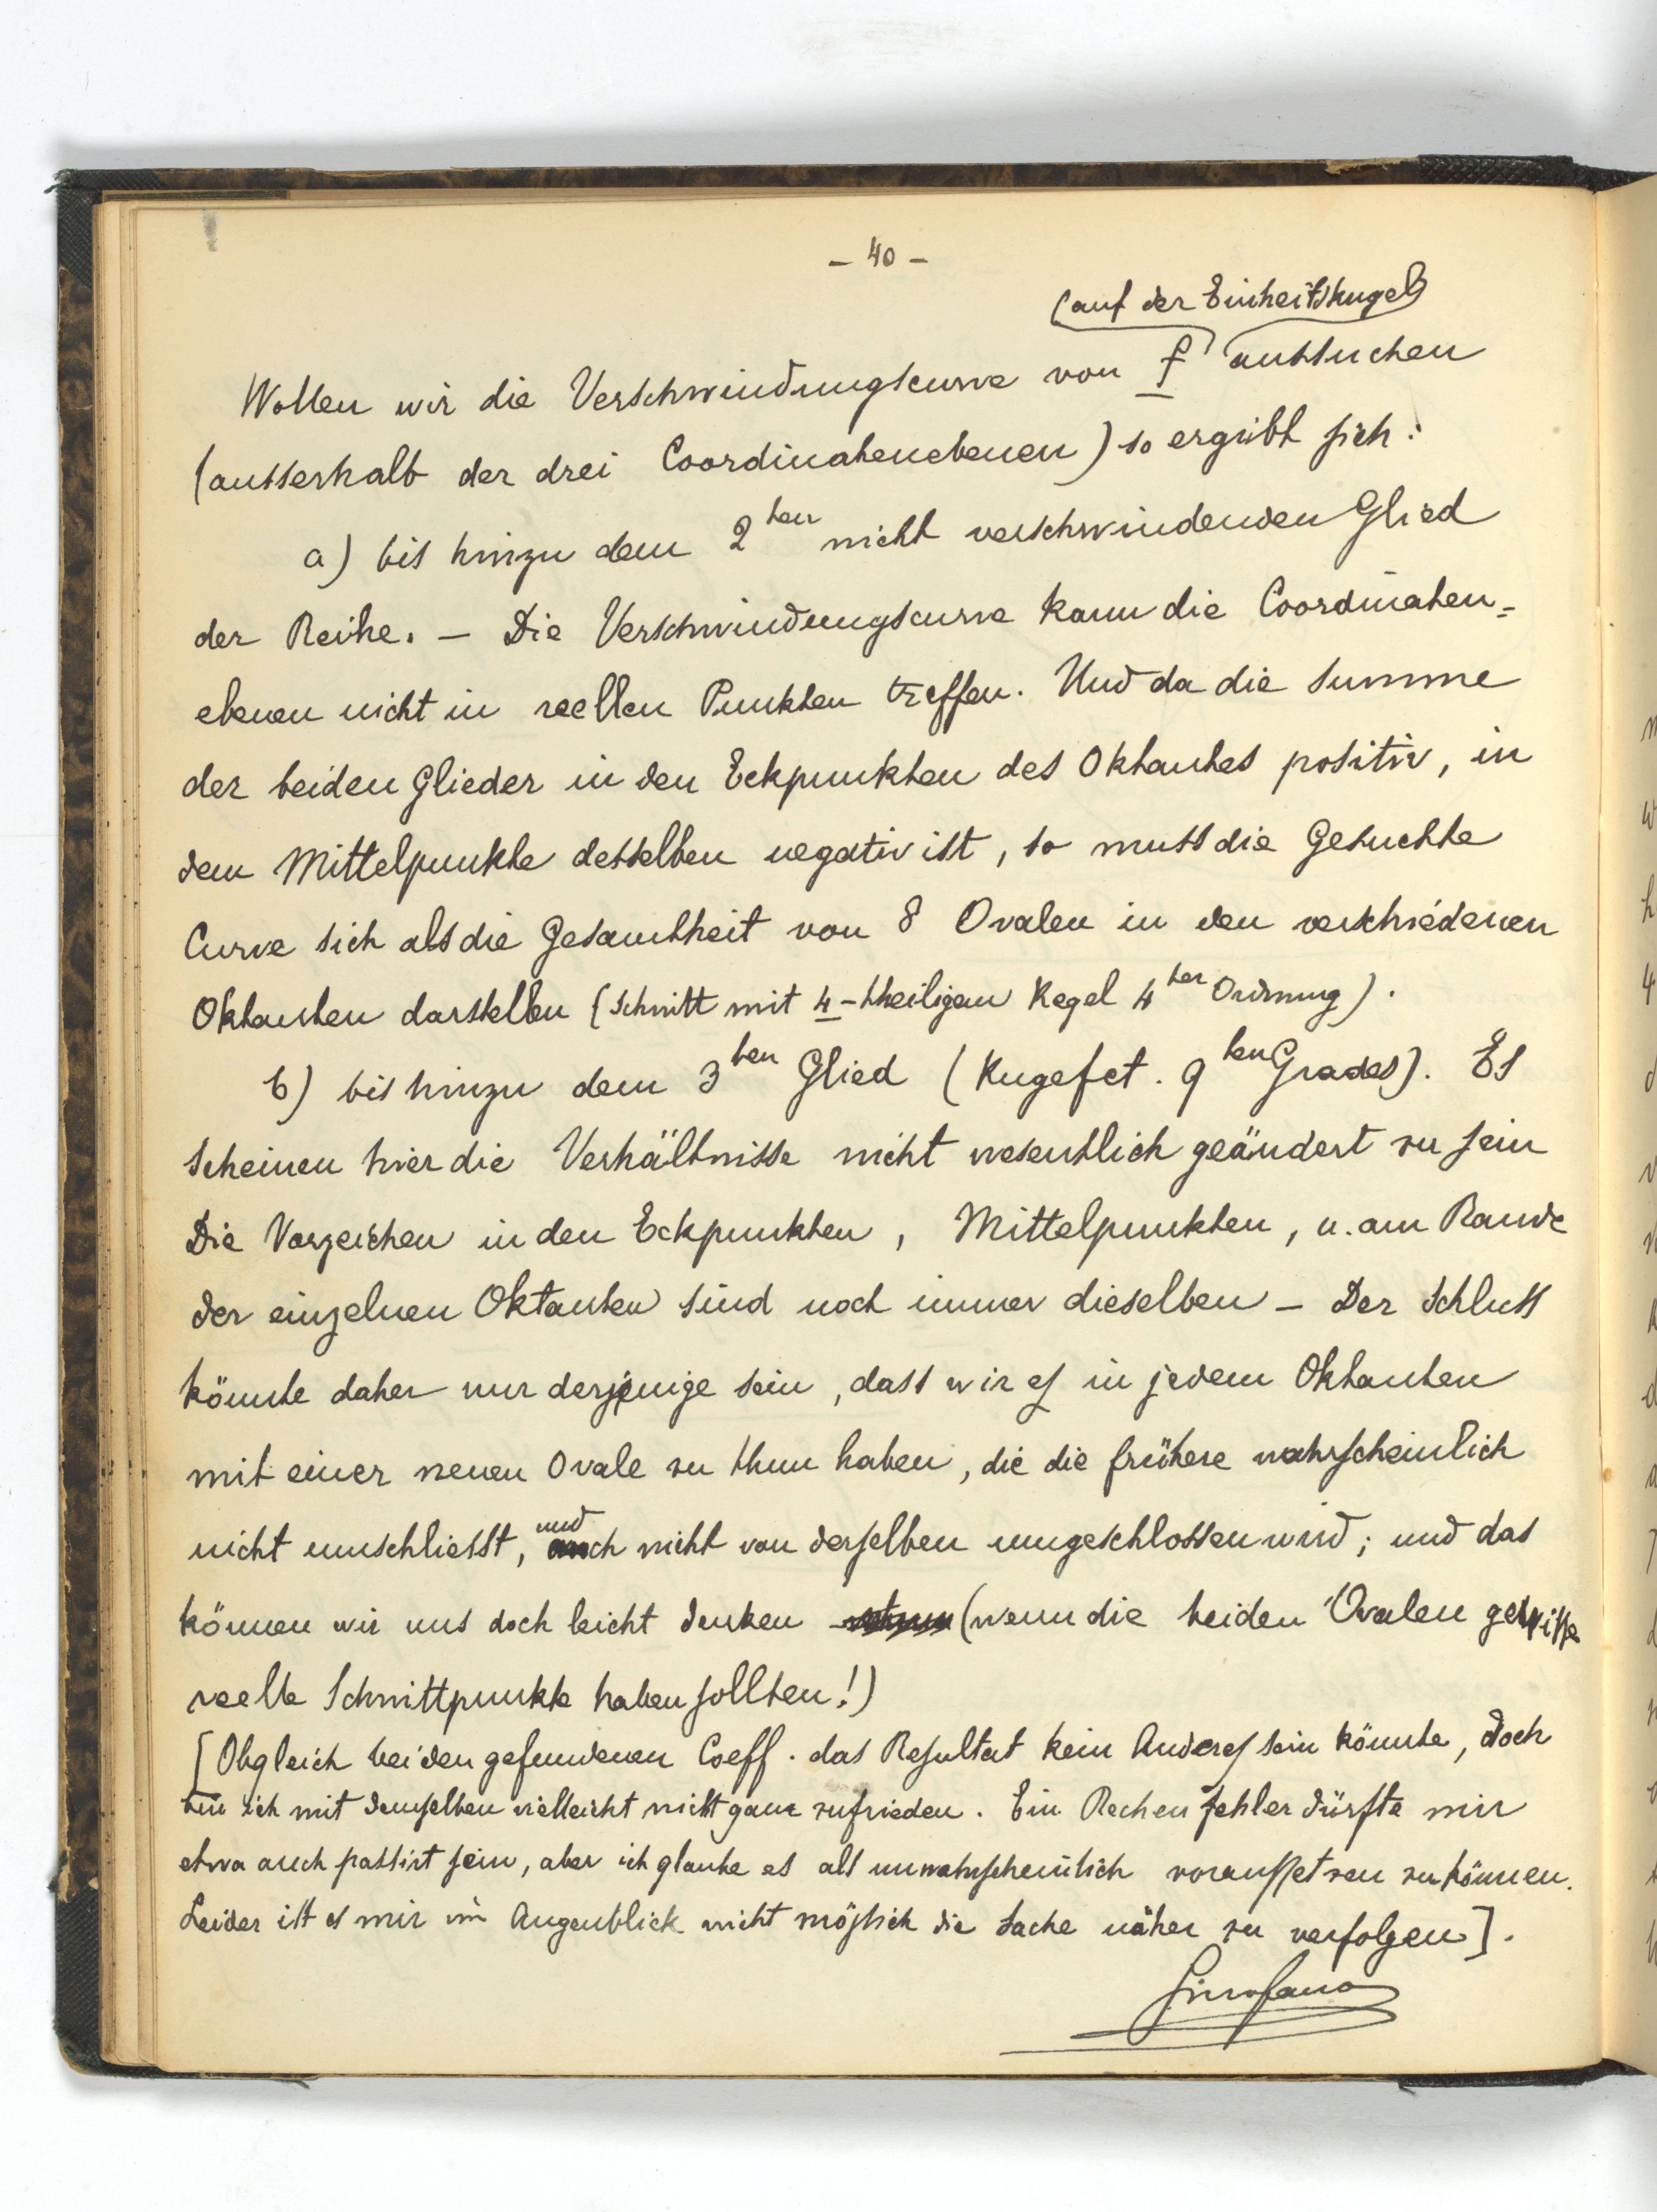 – 40 –
(auf der Einheitskugel)
Wollen wir die Verschwindungscurve von f aussuchen
(ausserhalb der drei Coordinatenebenen) so ergiebt sich:
a) bis hinzu dem 2ten nicht verschwindenden Glied
der Reihe. – Die Verschwindungscurve kann die Coordinaten=
ebenen nicht in reellen Punkten treffen. Und da die Summe
der beiden Glieder in den Eckpunkten des Oktantes positiv, in
dem Mittelpunkte desselben negativ ist, so muss die Gesuchte
Curve sich als die Gesamtheit von 8 Ovalen in den verschiedenen
Oktanten darstellen (Schnitt mit 4-theiligem Kegel 4ter Ordnung).
b) bis hinzu dem 3ten Glied (Kugelfct. 9ten Grades). Es
scheinen hier die Verhältnisse nicht wesentlich geändert zu sein
Die Vorzeichen in den Eckpunkten, Mittelpunkten, u. am Rande
der einzelnen Oktanten sind noch immer dieselben – Der Schluss
könnte daher nur derjenige sein, dass wir es in jedem Oktanten
mit einer neuen Ovale zu thun haben, die die frühere wahrscheinlich
nicht umschliesst, und auch nicht von derselben umgeschlossen wird; und das
können wir uns doch leicht denken (wenn die beiden Ovalen gewisse
reelle Schnittpunkte haben sollten!)
[Obgleich bei den gefundenen Coeff. das Resultat kein Anderes sein könnte, doch
bin ich mit demselben vielleicht nicht ganz zufrieden. Ein Rechenfehler dürfte mir
etwa auch passirt sein, aber ich glaube es als unwahrscheinlich voraussetzen zu können.
Leider ist es mir im Augenblick nicht möglich die Sache näher zu verfolgen].
Gino Fano